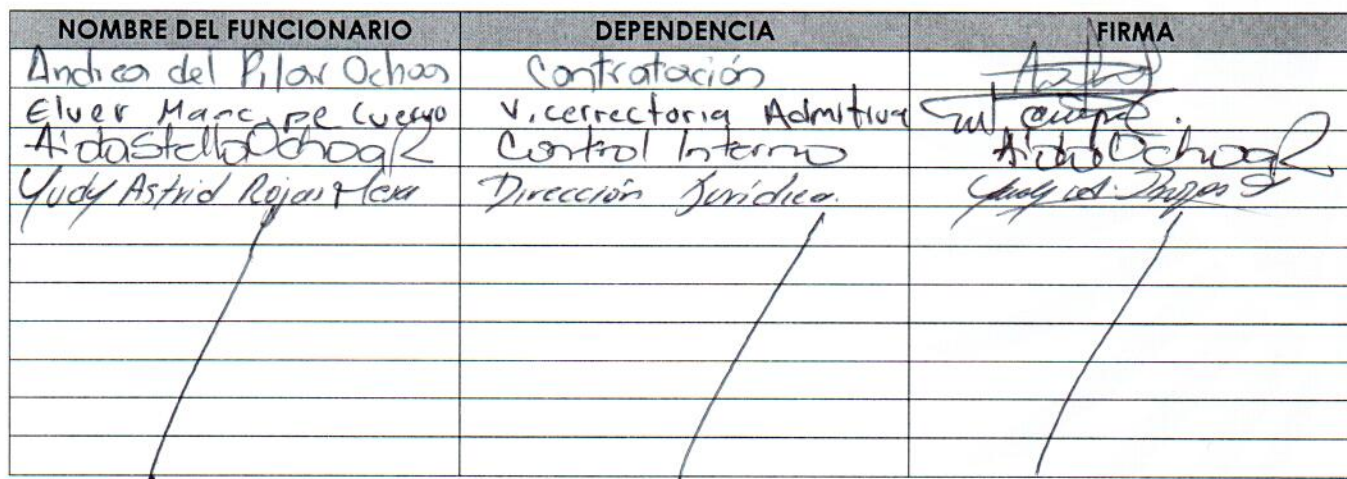 NOMBRE DEL FUNCIONARIO DEPENDENCIA FIRMA
Andrea del Pilar Ochoa Contratación
Elver Marc. pe Cuervo Vicerrectoria Admitiva
Aida Stella Ochoa R Control Interno Aida Ochoa R
Yudy Astrid Rojas Mesa Dirección Jurídica. Yudy A. Rojas